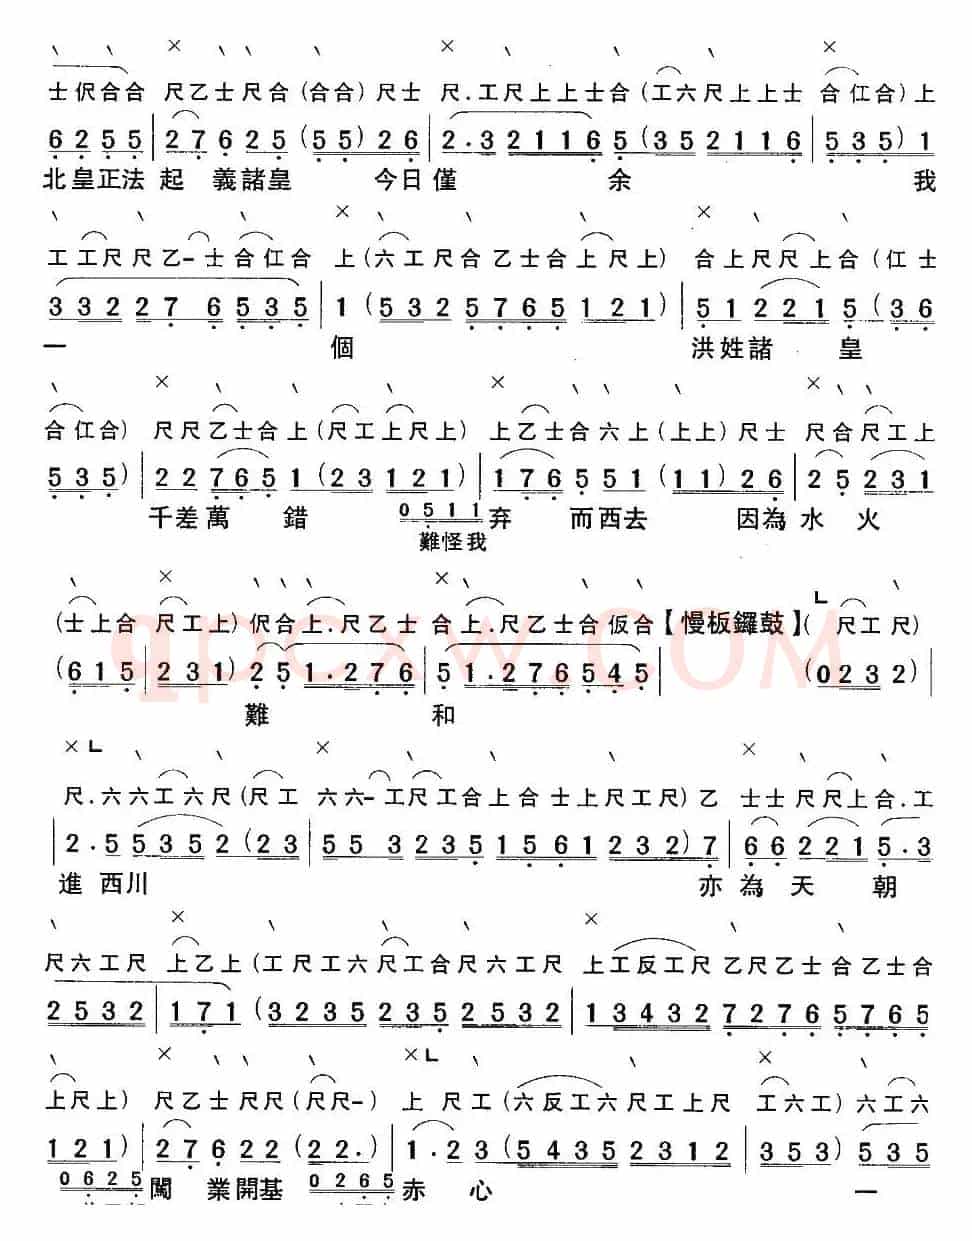 士伬合合 尺乙士尺合(合合)尺士 尺.工尺上上士合(工六尺上上士 合仜合)上
6255|27625(55)26|2.321165(352116|535)1
北皇正法起 義諸皇 今日僅 余 我
工工尺尺乙-士合仜合 上(六工尺合乙士合上尺上) 合上尺尺上合(仜士
332276535|1(5325765121)|512215(36
一 個 洪姓諸 皇
合仜合) 尺尺乙士合上(尺工上尺上) 上乙士合六上(上上)尺士 尺合尺工上
535)|227651(23121)|176551(11)26|25231
千差萬 錯 0511 弃 而西去 因為水 火
難怪我
(士上合 尺工上)伬合上.尺乙士 合上.尺乙士合仮合【慢板鑼鼓】( 尺工尺)
(615|231)251.276|51.276545| (0232)|
難 和
尺.六六工六尺(尺工 六六-工尺工合上合士上尺工尺)乙 士士尺尺上合.工
|2.55352(23|5532351561232)7|662215.3
進 西川 亦 為 天 朝
尺六工尺 上乙上(工尺工六尺工合尺六工尺 上工反工尺乙尺乙士合乙士合
2532|171(32352352532|1343272765765
上尺上) 尺乙士尺尺(尺尺-) 上 尺工(六反工六尺工上尺 工六工)六工六
121)|27622(22.)|1.23(54352312|353)535
0625 闖 業開基 0265 赤 心 一